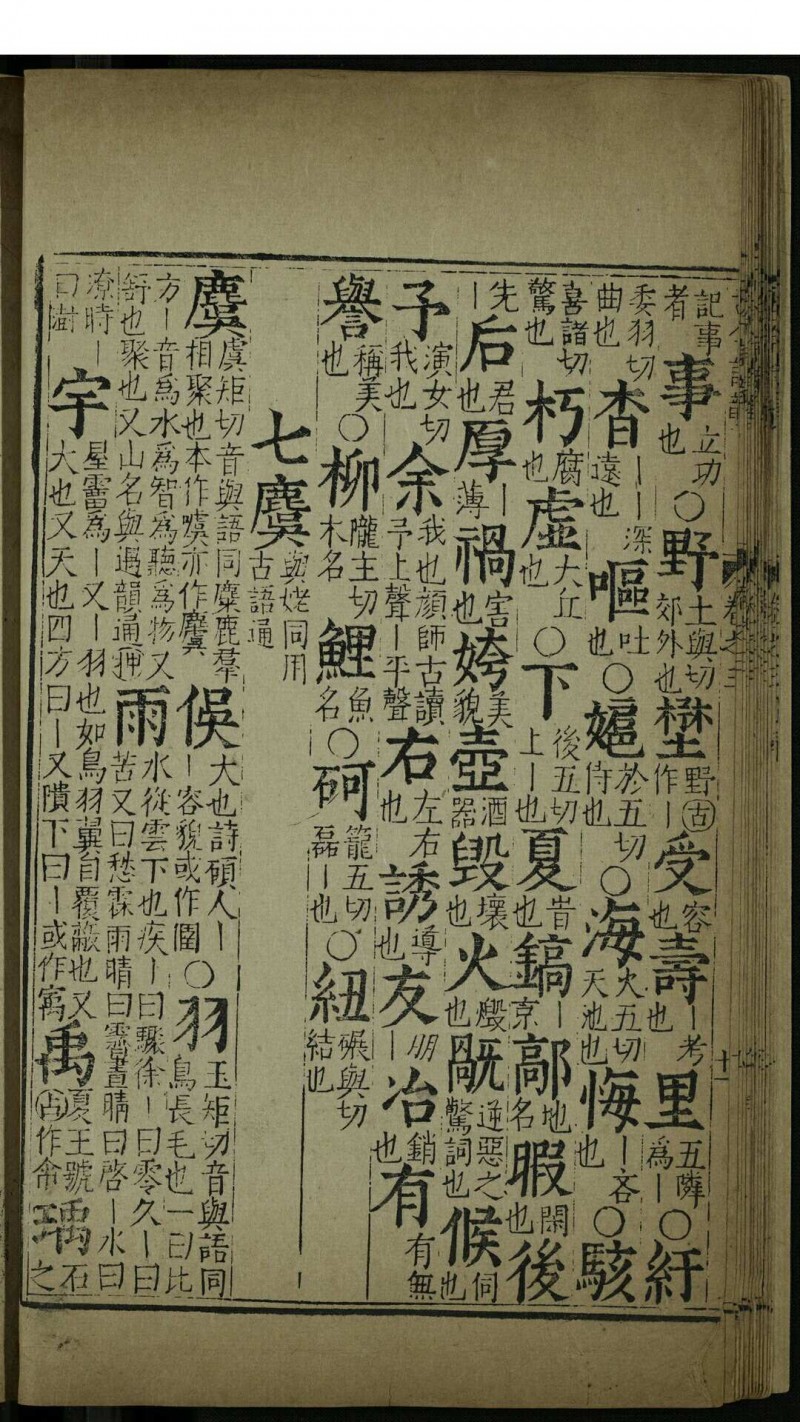 記事者事立功也○野土與切郊外也壄野古作｜受容也壽｜考也里五鄰為｜○紆
委羽切曲也杳｜｜深遠也嘔吐也○嫗於五切侍也○海火五切天池也悔｜吝也○駭
喜諸切驚也朽腐也虛大丘也○下後五切上｜也夏昔也鎬｜京鄗地名暇閑也後
先｜后君也厚｜薄禍害也姱美貌壺酒器毀壞也火燬也㞃逆惡之驚詞也候伺也
予演女切我也余我也顏師古讀予上聲｜平聲右左右也誘導也友｜朋冶銷也有有無
譽稱美也○柳隴主切木名鯉魚名○砢籠五切磊｜也○紐碾與切結也
七麌與姥同用古語通
麌虞矩切音與語同麋鹿羣相聚也本作噳亦作麌俁大也詩碩人｜｜容貌或作㒁○羽玉矩切音與語同鳥長毛也一曰比
方｜音為水為智為聽為物又舒也聚也又山名與遇韻通押雨水從雲下也疾｜曰驟徐｜曰零久｜曰苦又曰愁霖雨晴曰霽晝晴曰啓｜水曰
潦時｜曰澍宇星霤為｜又｜羽也如鳥羽翼自覆蔽也又大也又天也四方曰｜又隤下曰｜或作㝢禹夏王號古作命瑀石之